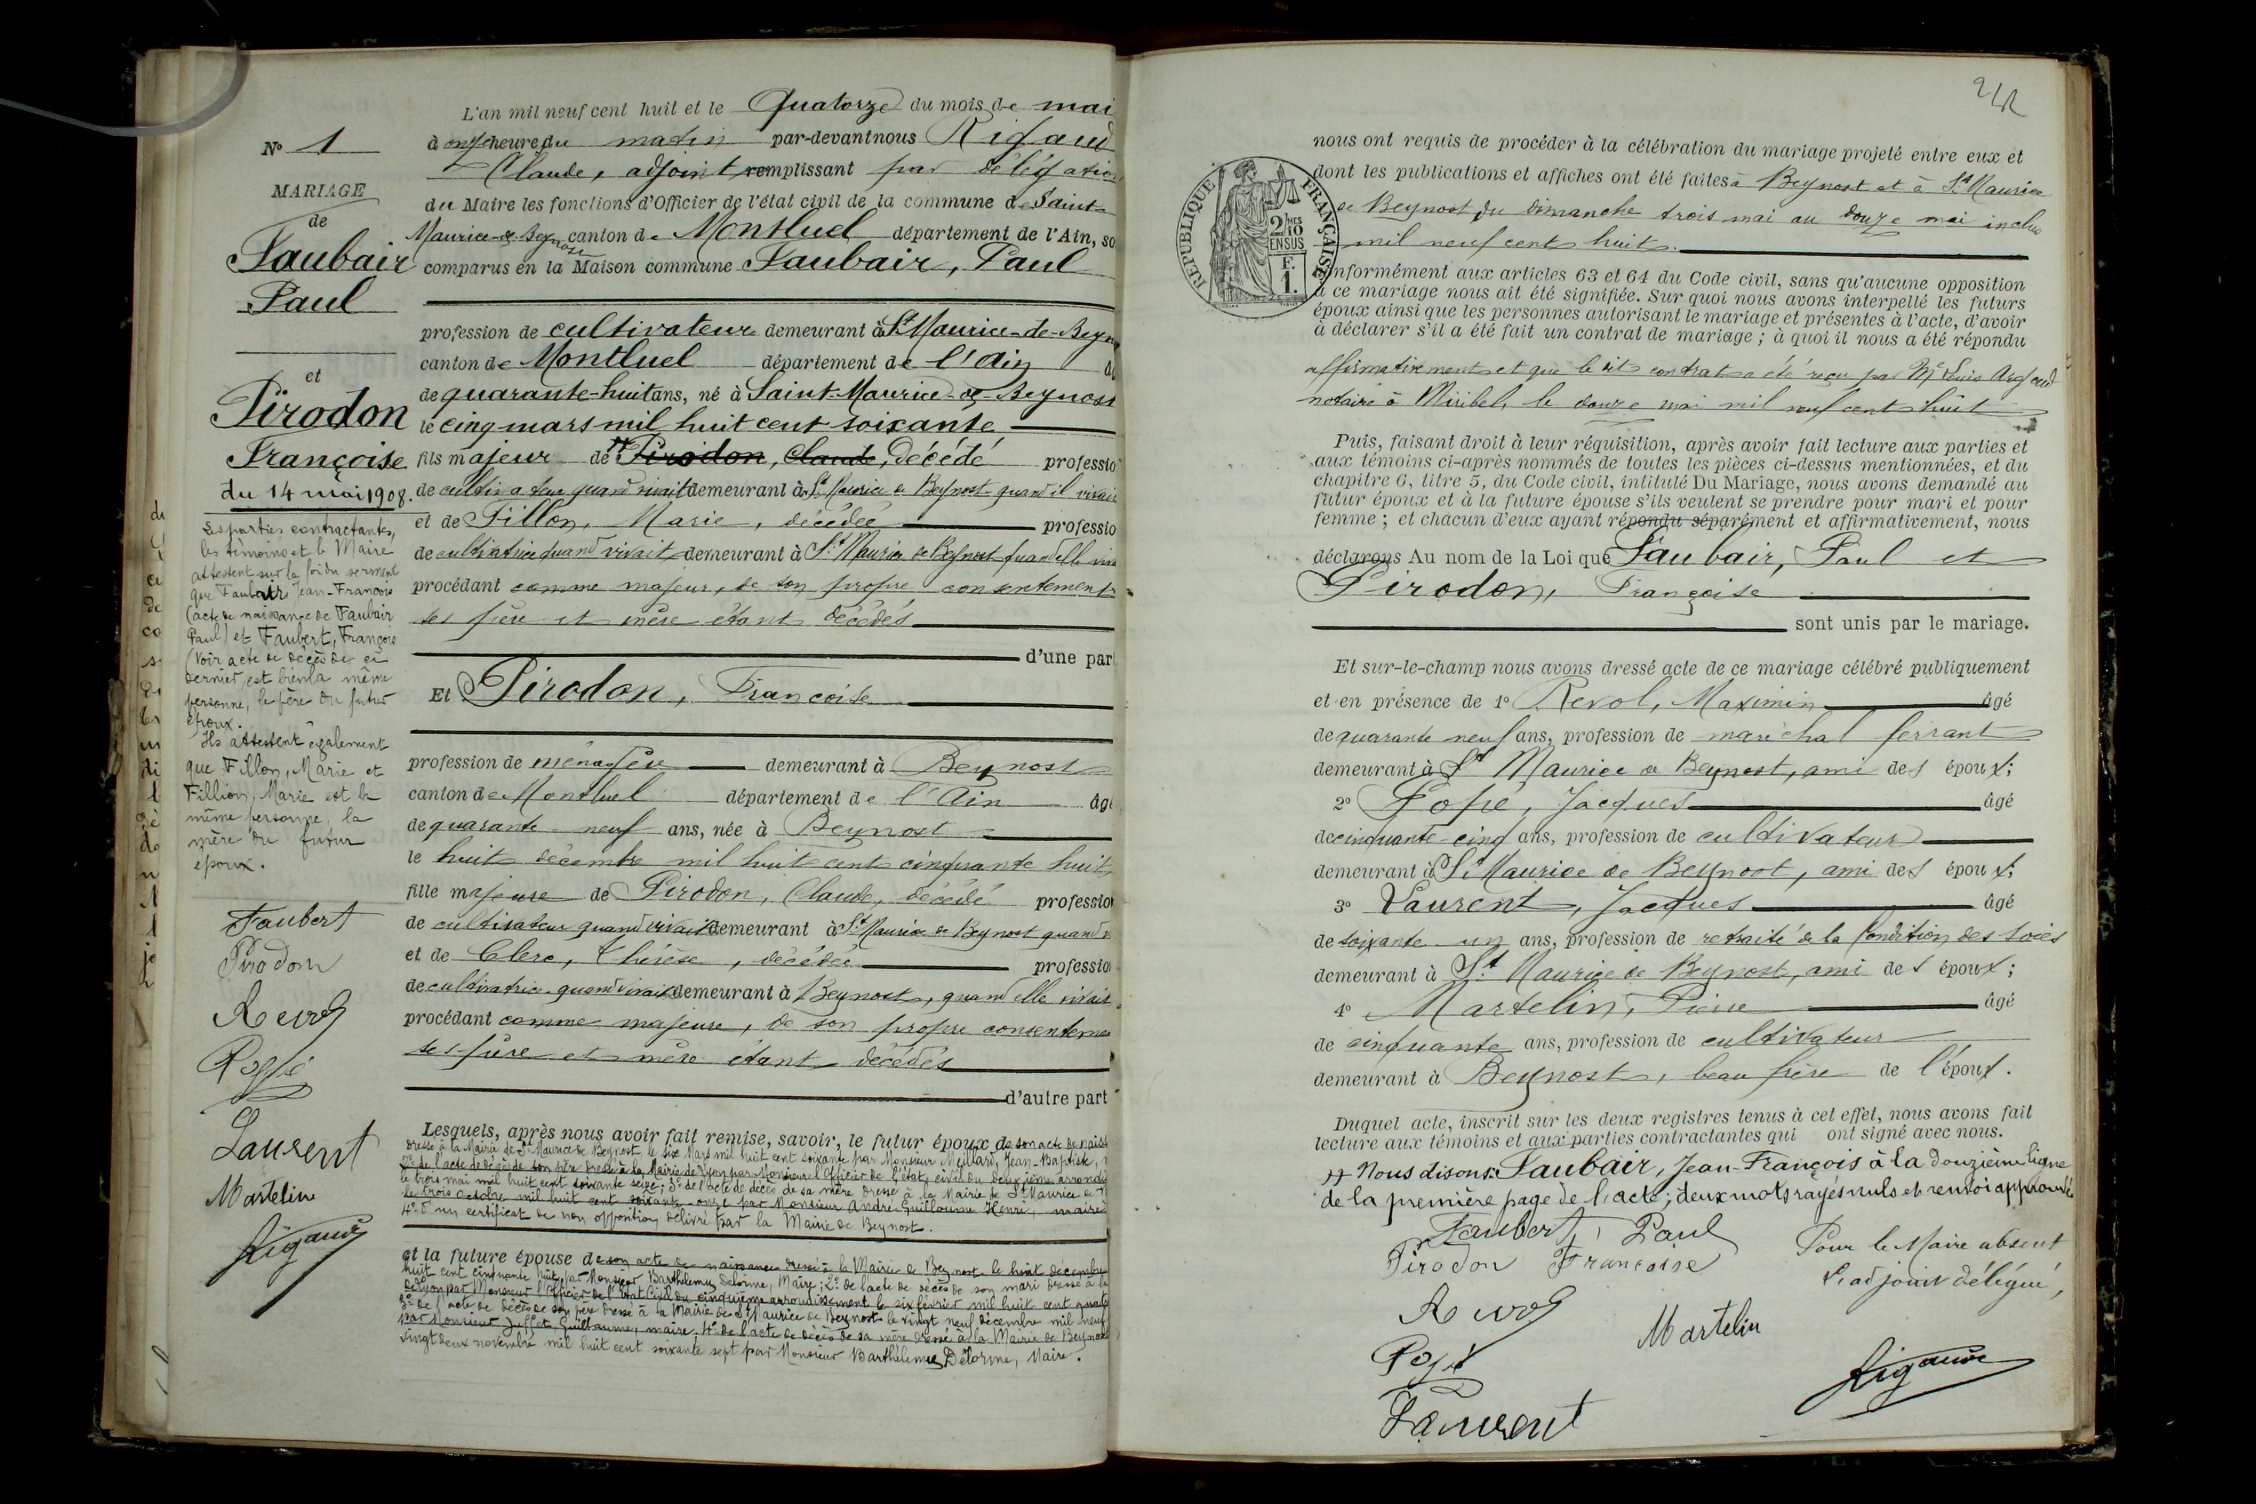 N° 1
MARIAGE
de
Faubair
Paul
et
Pirodon
Françoise
du 14 mai 1908.
Les parties contractantes,
les témoins et le Maire
attestent sur la foi du serment
que Faubair Jean-François
(acte de naissance de Faubair
Paul) et Faubert, François
(voir acte de décès de ce
dernier, est bien la même
personne, le père du futur
époux.
Ils attestent également
que Fillon, Marie et
Fillion, Marie est la
même personne, la
mère du futur
époux.
Faubert
Pirodon
Revol
Popé
Laurent
Martelin
Rigaud
L'an mil neuf cent huit et le Quatorze du mois de mai
à onze heure du matin par-devant nous Rigaud
Claude, adjoint remplissant par délégation
du Maire les fonctions d'Officier de l'état civil de la commune de Saint-
Maurice-de-Beynost canton de Montluel département de l'Ain, so
comparus en la Maison commune Faubair, Paul
profession de cultivateur demeurant à St Maurice-de-Beyn
canton de Montluel département de l'Ain
de quarante-huit ans, né à Saint-Maurice-de-Beynost
le cinq mars mil huit cent soixante
fils majeur de Pirodon, Claude, décédé professio
de cultivateur quand vivait demeurant à St Maurice de Beynost quand il vivait
et de Fillon, Marie, décédée professio
de cultivatrice quand vivait demeurant à St Maurice de Beynost quand elle viv
procédant comme majeur, de son propre consentement
ses père et mère étant décédés
d'une part
Et Pirodon, Françoise
profession de ménagère demeurant à Beynost
canton de Montluel département de l'Ain âgé
de quarante-neuf ans, née à Beynost
le huit décembre mil huit cent cinquante huit
fille majeure de Pirodon, Claude, décédé profession
de cultivateur quand vivait demeurant à St Maurice de Beynost quand
et de Clerc, Thérèse, décédée professio
de cultivatrice quand vivait demeurant à Beynost, quand elle vivait
procédant comme majeure, de son propre consenteme
ses père et mère étant décédés
d'autre part
Lesquels, après nous avoir fait remise, savoir, le futur époux de son acte de naiss
dressé à la Mairie de St Maurice de Beynost le six Mars mil huit cent soixante par Monsieur Meillard, Jean-Baptiste,
2° de l'acte de décès de son père dressé à la Mairie de Lyon par Monsieur l'Officier de l'état civil du deuxième arrondis
le trois mai mil huit cent soixante seize; 3° de l'acte de décès de sa mère dressé à la Mairie de St Maurice de
le trois octobre mil huit cent soixante-onze par Monsieur André Guillaume Henri, maire
4° d'un certificat de non opposition délivré par la Mairie de Beynost.
et la future épouse de son acte de naissance dressé à la Mairie de Beynost le huit décembre
huit cent cinquante huit par Monsieur Barthélemy Delorme, Maire; 2° de l'acte de décès de son mari dressé à la
de Lyon par Monsieur l'Officier de l'état Civil du cinquième arrondissement le six février mil huit cent quat
3° de l'acte de décès de son père dressé à la Mairie de St Maurice de Beynost le vingt neuf décembre mil neuf
par Monsieur Juffet Guillaume, maire; 4° de l'acte de décès de sa mère dressé à la Mairie de Beynost
vingt deux novembre mil huit cent soixante sept par Monsieur Barthélemy Delorme, Maire.
RÉPUBLIQUE FRANÇAISE
2/10
EN SUS
F.
1.
nous ont requis de procéder à la célébration du mariage projeté entre eux et
dont les publications et affiches ont été faites à Beynost et à St Maurice
de Beynost du dimanche trois mai au douze mai inclus
mil neuf cent huit.
Conformément aux articles 63 et 64 du Code civil, sans qu'aucune opposition
à ce mariage nous ait été signifiée. Sur quoi nous avons interpellé les futurs
époux ainsi que les personnes autorisant le mariage et présentes à l'acte, d'avoir
à déclarer s'il a été fait un contrat de mariage; à quoi il nous a été répondu
affirmativement et que le dit contrat a été reçu par Me Louis Argoud
notaire à Miribel, le douze mai mil neuf cent huit
Puis, faisant droit à leur réquisition, après avoir fait lecture aux parties et
aux témoins ci-après nommés de toutes les pièces ci-dessus mentionnées, et du
chapitre 6, titre 5, du Code civil, intitulé Du Mariage, nous avons demandé au
futur époux et à la future épouse s'ils veulent se prendre pour mari et pour
femme; et chacun d'eux ayant répondu séparément et affirmativement, nous
déclarons Au nom de la Loi que Faubair, Paul et
Pirodon, Françoise
sont unis par le mariage.
Et sur-le-champ nous avons dressé acte de ce mariage célébré publiquement
et en présence de 1° Revol, Maximin âgé
de quarante neuf ans, profession de maréchal ferrant
demeurant à St Maurice de Beynost, ami des époux;
2° Popé, Jacques âgé
de cinquante-cinq ans, profession de cultivateur
demeurant à St Maurice de Beynost, ami des époux;
3° Laurent, Jacques âgé
de soixante-un ans, profession de retraité de la Condition des Soies
demeurant à St Maurice de Beynost, ami des époux;
4° Martelin, Pierre âgé
de cinquante ans, profession de cultivateur
demeurant à Beynost, beau frère de l'époux.
Duquel acte, inscrit sur les deux registres tenus à cet effet, nous avons fait
lecture aux témoins et aux parties contractantes qui ont signé avec nous.
Nous disons: Faubair, Jean-François à la douzième ligne
de la première page de l'acte; deux mots rayés nuls et renvoi approuvé
Faubert, Paul
Pirodon Françoise
Pour le Maire absent
L'adjoint délégué,
Revol
Martelin
Popé
Rigaud
Laurent